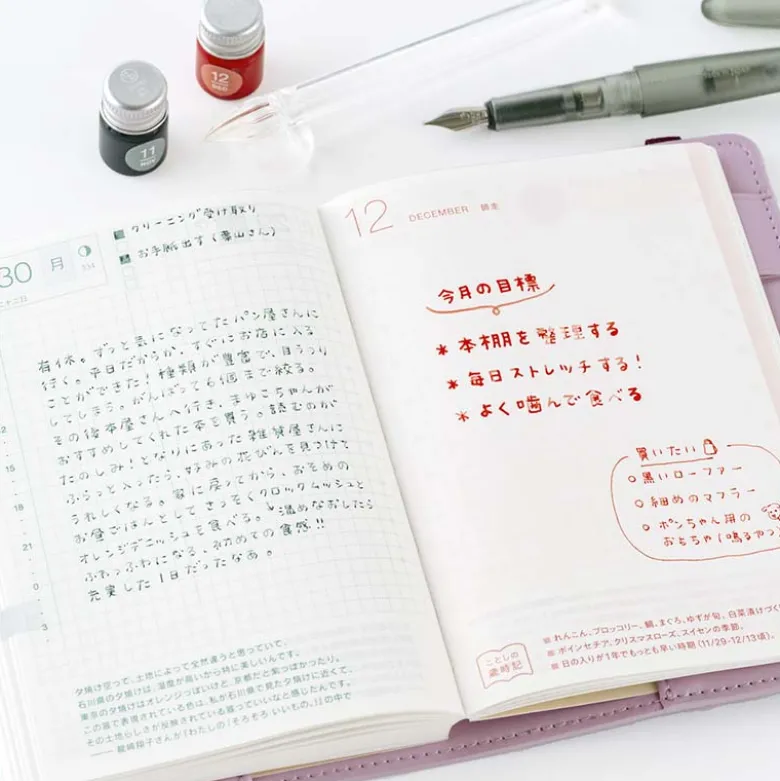 12
DEC
11
NOV
クリーニング受け取り
お手紙出す(青山さん)
30 月
334
二十二日
有休。ずっと気になってたパン屋さんに
行く。平日だからか、すぐにお店に入る
ことができた!種類が豊富で、目うつり
してしまう。がんばっても6個まで絞る。
その後本屋さんへ行き、まゆこちゃんが
おすすめしてくれた本を買う。読むのが
たのしみ!となりにあった雑貨屋さんに
ふらっと入ったら、好みの花びんを見つけて
うれしくなる。家に戻ってから、おそめの
お昼ごはんとしてさっそくクロックムッシュと
オレンジデニッシュを食べる。
温めなおしたら
ふわっふわになる、初めての食感!!
充実した1日だったなあ。
12
15
18
21
0
3
夕焼け空って、土地によって全然違うと思っていて、
石川県の夕焼けは、湿度が高いから特に美しいんです。
東京の夕焼けはオレンジっぽいけど、京都だと紫っぽかったり。
この器で表現されている色は、私が石川県で見た夕焼けに近くて、
その土地らしさが反映されている器っていいなと感じたんです。
さんが『わたしの「そろそろ いいもの。」』の中で
12 DECEMBER 師走
今月の目標
* 本棚を整理する
* 毎日ストレッチする!
* よく噛んで食べる
買いたい
黒いローファー
細めのマフラー
ポンちゃん用の
おもちゃ(鳴るやつ)
ことしの
歳時記
れんこん、ブロッコリー、鯛、まぐろ、ゆずが旬。白菜漬けづくり
ポインセチア、クリスマスローズ、スイセンの季節。
日の入りが1年でもっとも早い時期(11/29-12/13頃)。